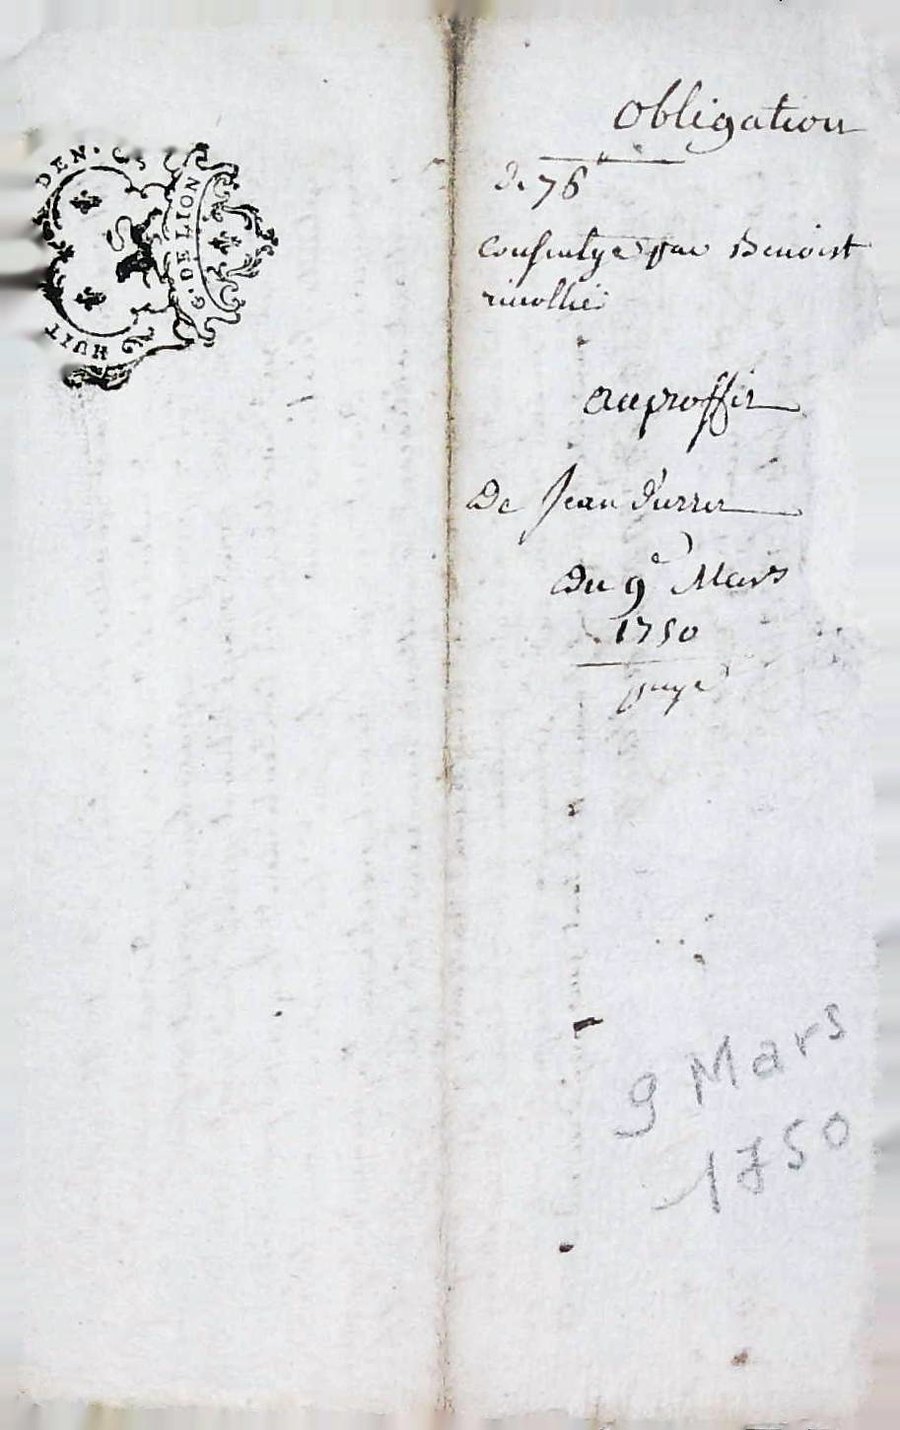 HUIT DEN.
G. DE LION
Obligation
de 76
consentye par Benoist
rivollié
au proffit
De Jean Durret
Du 9e Mars
1750
payé
9 Mars
1750